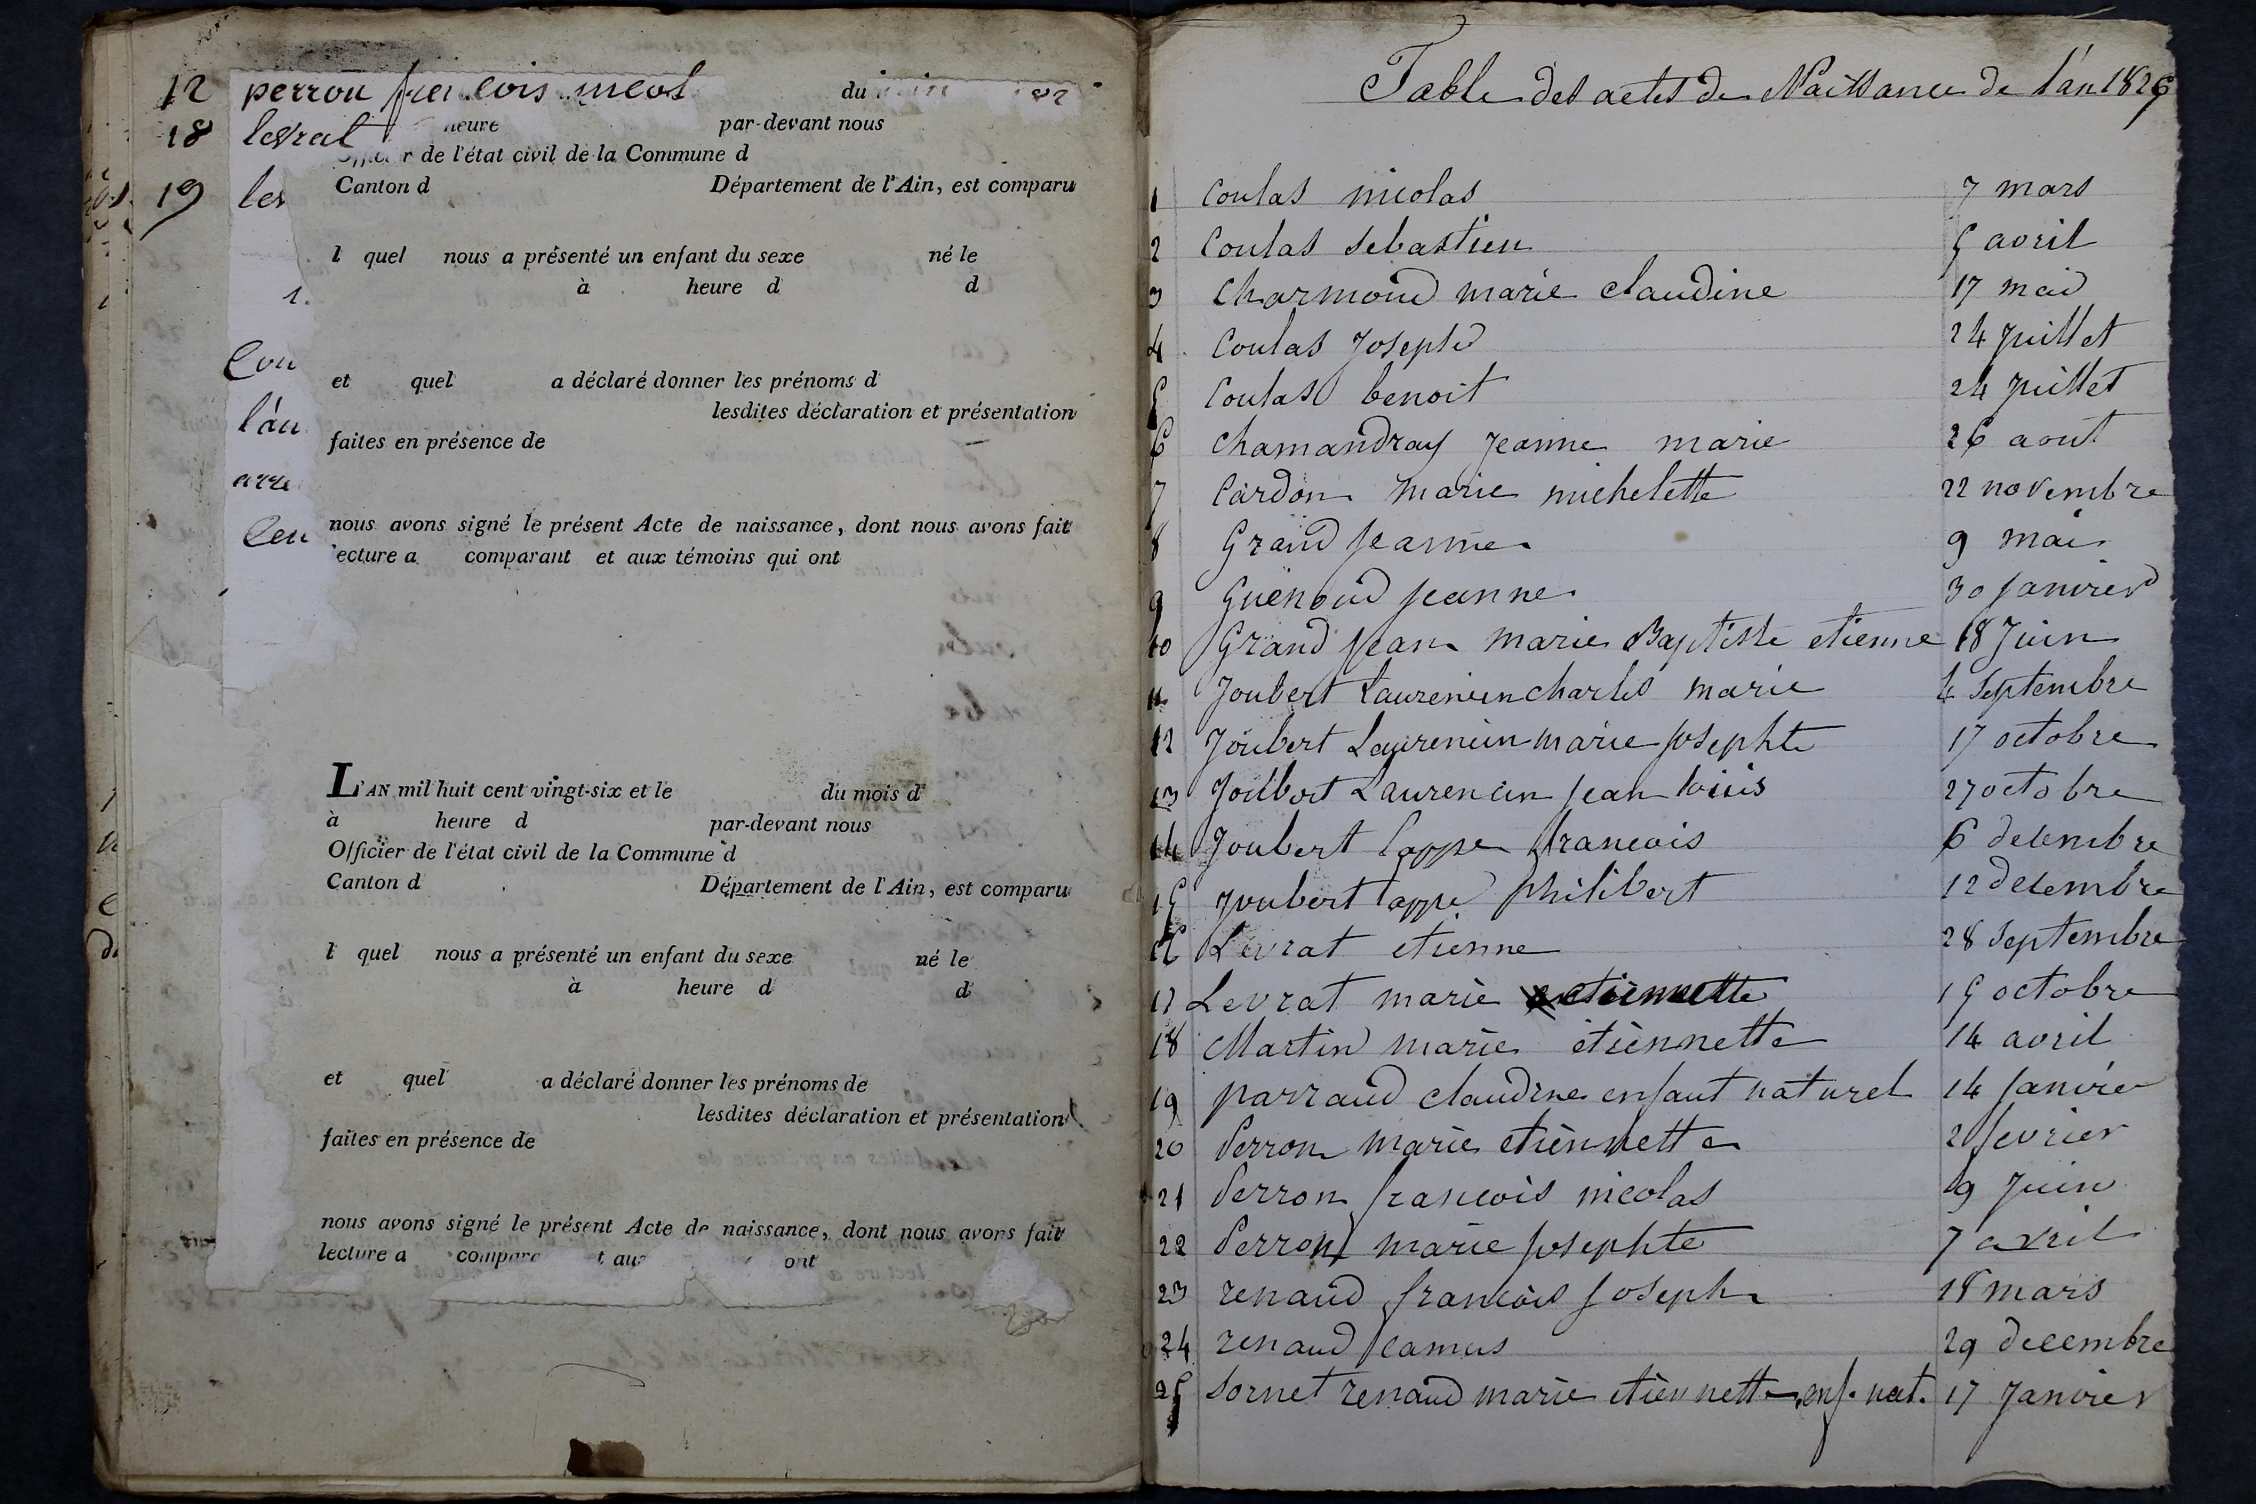 12 perron
18 levrat
19
du
heure par-devant nous
de l'état civil de la Commune d
Canton d Département de l'Ain, est comparu
l quel nous a présenté un enfant du sexe né le
à heure d d
et quel a déclaré donner les prénoms d
lesdites déclaration et présentation
faites en présence de
nous avons signé le présent Acte de naissance, dont nous avons fait
lecture a comparant et aux témoins qui ont
L'AN mil huit cent vingt-six et le du mois d
à heure d par-devant nous
Officier de l'état civil de la Commune d
Canton d Département de l'Ain, est comparu
l quel nous a présenté un enfant du sexe né le
à heure d d
et quel a déclaré donner les prénoms de
lesdites déclaration et présentation
faites en présence de
nous avons signé le présent Acte de naissance, dont nous avons fait
lecture a ont
Table des actes de Naissance de l'an
1 Coulas nicolas 7 mars
2 Coulas sebastien 5 avril
3 Charmond marie claudine 17 mai
4 Coulas Joseph 24 Juillet
5 Coulas benoit 24 Juillet
6 chamandray Jeanne marie 26 aout
7 Cardon marie michelette 22 novembre
8 Grand Jeanne 9 mai
9 Guenoud Jeanne 30 Janvier
10 Grand Jean marie Baptiste etienne 18 Juin
11 Joubert Laurencin charles marie 4 Septembre
12 Joubert Laurencin marie Josephte 17 octobre
13 Joubert Laurencin Jean louis 27 octobre
14 Joubert Cappe francois 6 decembre
15 Joubert Cappe philibert 12 decembre
16 Levrat etienne 28 Septembre
17 Levrat marie etiennette 15 octobre
18 Martin marie etiennette 14 avril
19 parraud claudine enfant naturel 14 Janvier
20 Perron marie etiennette 2 fevrier
21 Perron francois nicolas 19 Juin
22 Perron marie Josephte 7 avril
23 renaud francois Joseph 18 mars
24 renaud Camus 29 decembre
25 Sornet renaud marie etiennette enf. nat. 17 Janvier